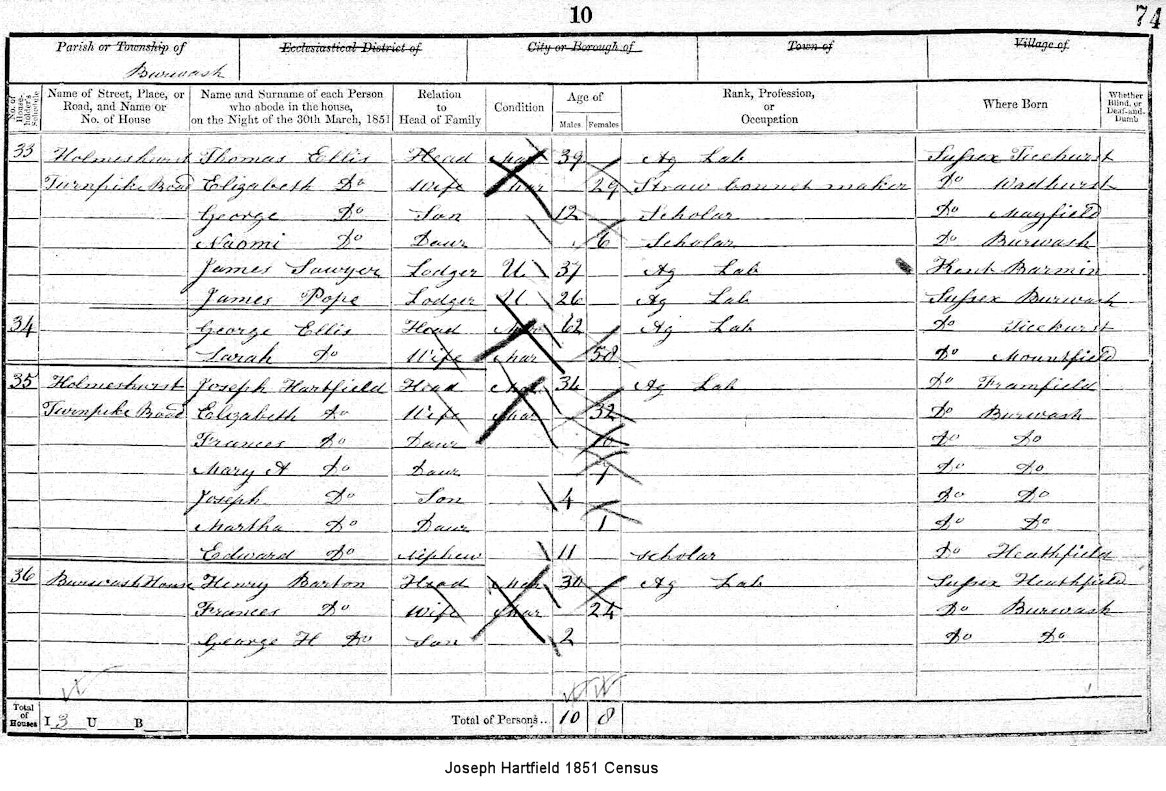 10
74
Parish or Township of Ecclesiastical District of City or Borough of Town of Village of
Burwash
No. of House-holder's Schedule
Name of Street, Place, or Road, and Name or No. of House
Name and Surname of each Person who abode in the house, on the Night of the 30th March, 1851
Relation to Head of Family
Condition
Age of
Males Females
Rank, Profession, or Occupation
Where Born
Whether Blind, or Deaf-and-Dumb
33 Holmeshurst Thomas Ellis Head Mar 39 Ag Lab Sussex Ticehurst
Turnpike Road Elizabeth Do Wife Mar 29 Straw bonnet maker Do Wadhurst
George Do Son 12 Scholar Do Mayfield
Naomi Do Daur 6 Scholar Do Burwash
James Sawyer Lodger U 37 Ag Lab Kent Barmin
James Pope Lodger U 26 Ag Lab Sussex Burwash
34 George Ellis Head Mar 62 Ag Lab Do Ticehurst
Sarah Do Wife Mar 58 Do Mountfield
35 Holmeshurst Joseph Hartfield Head Mar 34 Ag Lab Do Framfield
Turnpike Road Elizabeth Do Wife Mar 32 Do Burwash
Frances Do Daur 10 Do Do
Mary A Do Daur 7 Do Do
Joseph Do Son 4 Do Do
Martha Do Daur 1 Do Do
Edward Do Nephew 11 scholar Do Heathfield
36 Burwash House Henry Barton Head Mar 30 Ag Lab Sussex Heathfield
Frances Do Wife Mar 24 Do Burwash
George H Do Son 2 Do Do
Total of Houses I 3 U B Total of Persons... 10 8
Joseph Hartfield 1851 Census